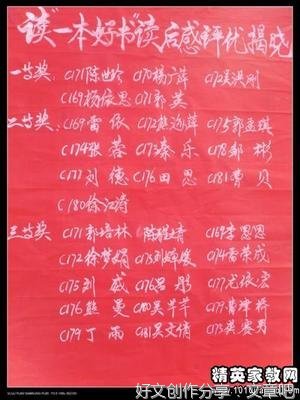 读"一本好书"读后感评优揭晓
一等奖 C171陈世龄 C170杨广萍 C172吴洪刚
C169杨依思 C171郭英
二等奖 C169雷依 C172熊迎萍 C175郭孟琪
C174张蓉 C173秦乐 C178邹彬
C177刘德 C176田思 C181曹贝
C180徐江涛
三等奖 C171郭培林 C169李恩恩
C172徐梦娟 C173刘辉俊 C174黄荣成
C175刘威 C176吕彤 C177尤依宏
C176熊曼 C180吴芊芊 C179曹津桥
C179丁雨 C181吴文倩
精英家教网
好文创作分享